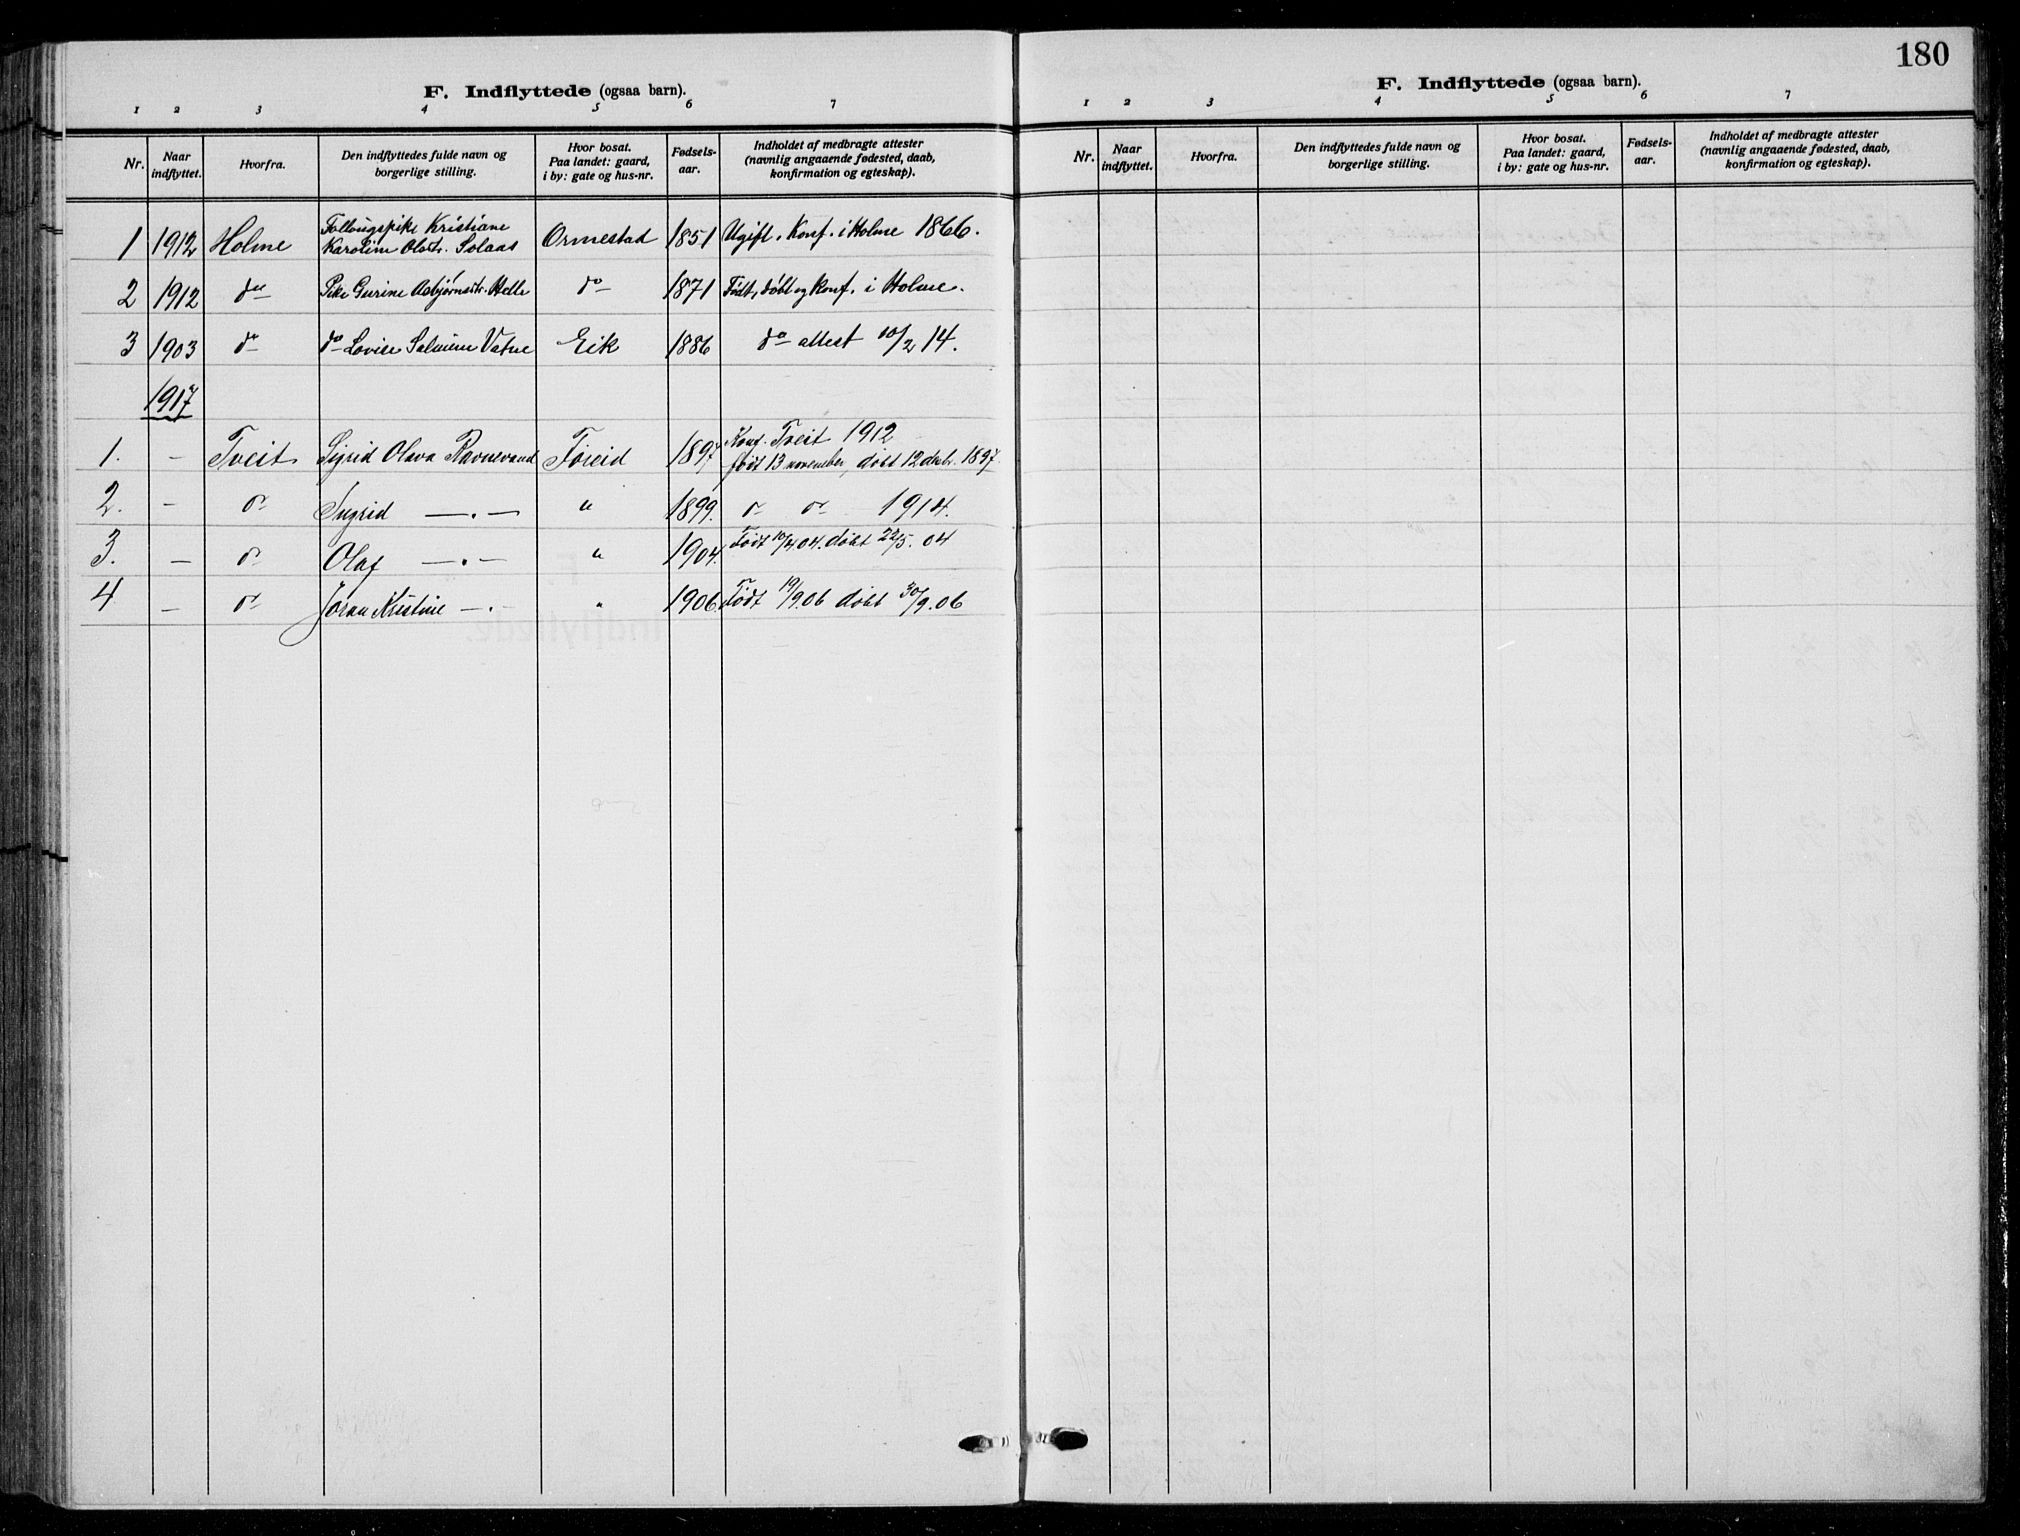 F. Indflyttede (ogsaa barn).
1 2 3 4 5 6 7
Nr. Naar indflyttet. Hvorfra. Den indflyttedes fulde navn og borgerlige stilling. Hvor bosat. Paa landet: gaard, i by: gate og hus-nr. Fødsels-aar. Indholdet af medbragte attester (navnlig angaaende fødested, daab, konfirmation og egteskap).
Follougspike Kristiane
1 1912 Holme Karoline Olsdtr. Solaas Ormestad 1851 Ugift. Konf. i Holme 1866.
2 1912 do Pike Gurine Asbjørnsdtr. Helle do 1871 Født, døbt og konf. i Holme.
3 1903 do do Lovise Salmine Vatne Eik 1886 do attest 10/2 14.
1917
Konf. Tveit 1912
1. - Tveit Sigrid Olava Ravnevand Føreid 1897 født 13 november, døbt 12 desbr. 1897.
2. - do Ingrid —.— " 1899. do do 1914.
3. - do Olaf —.— " 1904. Født 10/4 04. døbt 22/5. 04
4 - do Joran Kristine —.— " 1906. Født 19/9.06 døbt 30/9.06
180
F. Indflyttede (ogsaa barn).
1 2 3 4 5 6 7
Nr. Naar indflyttet. Hvorfra. Den indflyttedes fulde navn og borgerlige stilling. Hvor bosat. Paa landet: gaard, i by: gate og hus-nr. Fødsels-aar. Indholdet af medbragte attester (navnlig angaaende fødested, daab, konfirmation og egteskap).